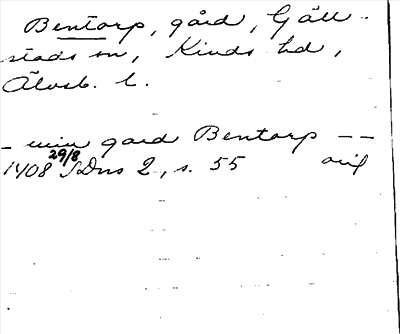 Bentorp, gård, Gäll-
stads sn, Kinds hd,
Älvsb. l.
- min gard Bentorp - -
1408 29/8 SDns 2, s. 55 orig